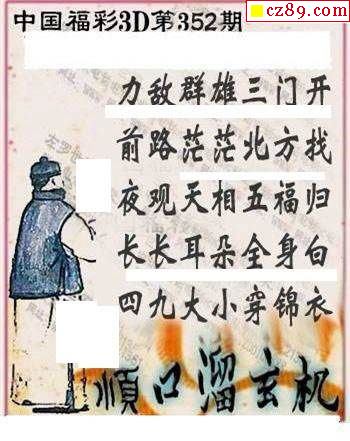 cz89.com
中国福彩3D第352期
力敌群雄三门开
前路茫茫北方找
夜观天相五福归
长长耳朵全身白
四九大小穿锦衣
顺口溜玄机